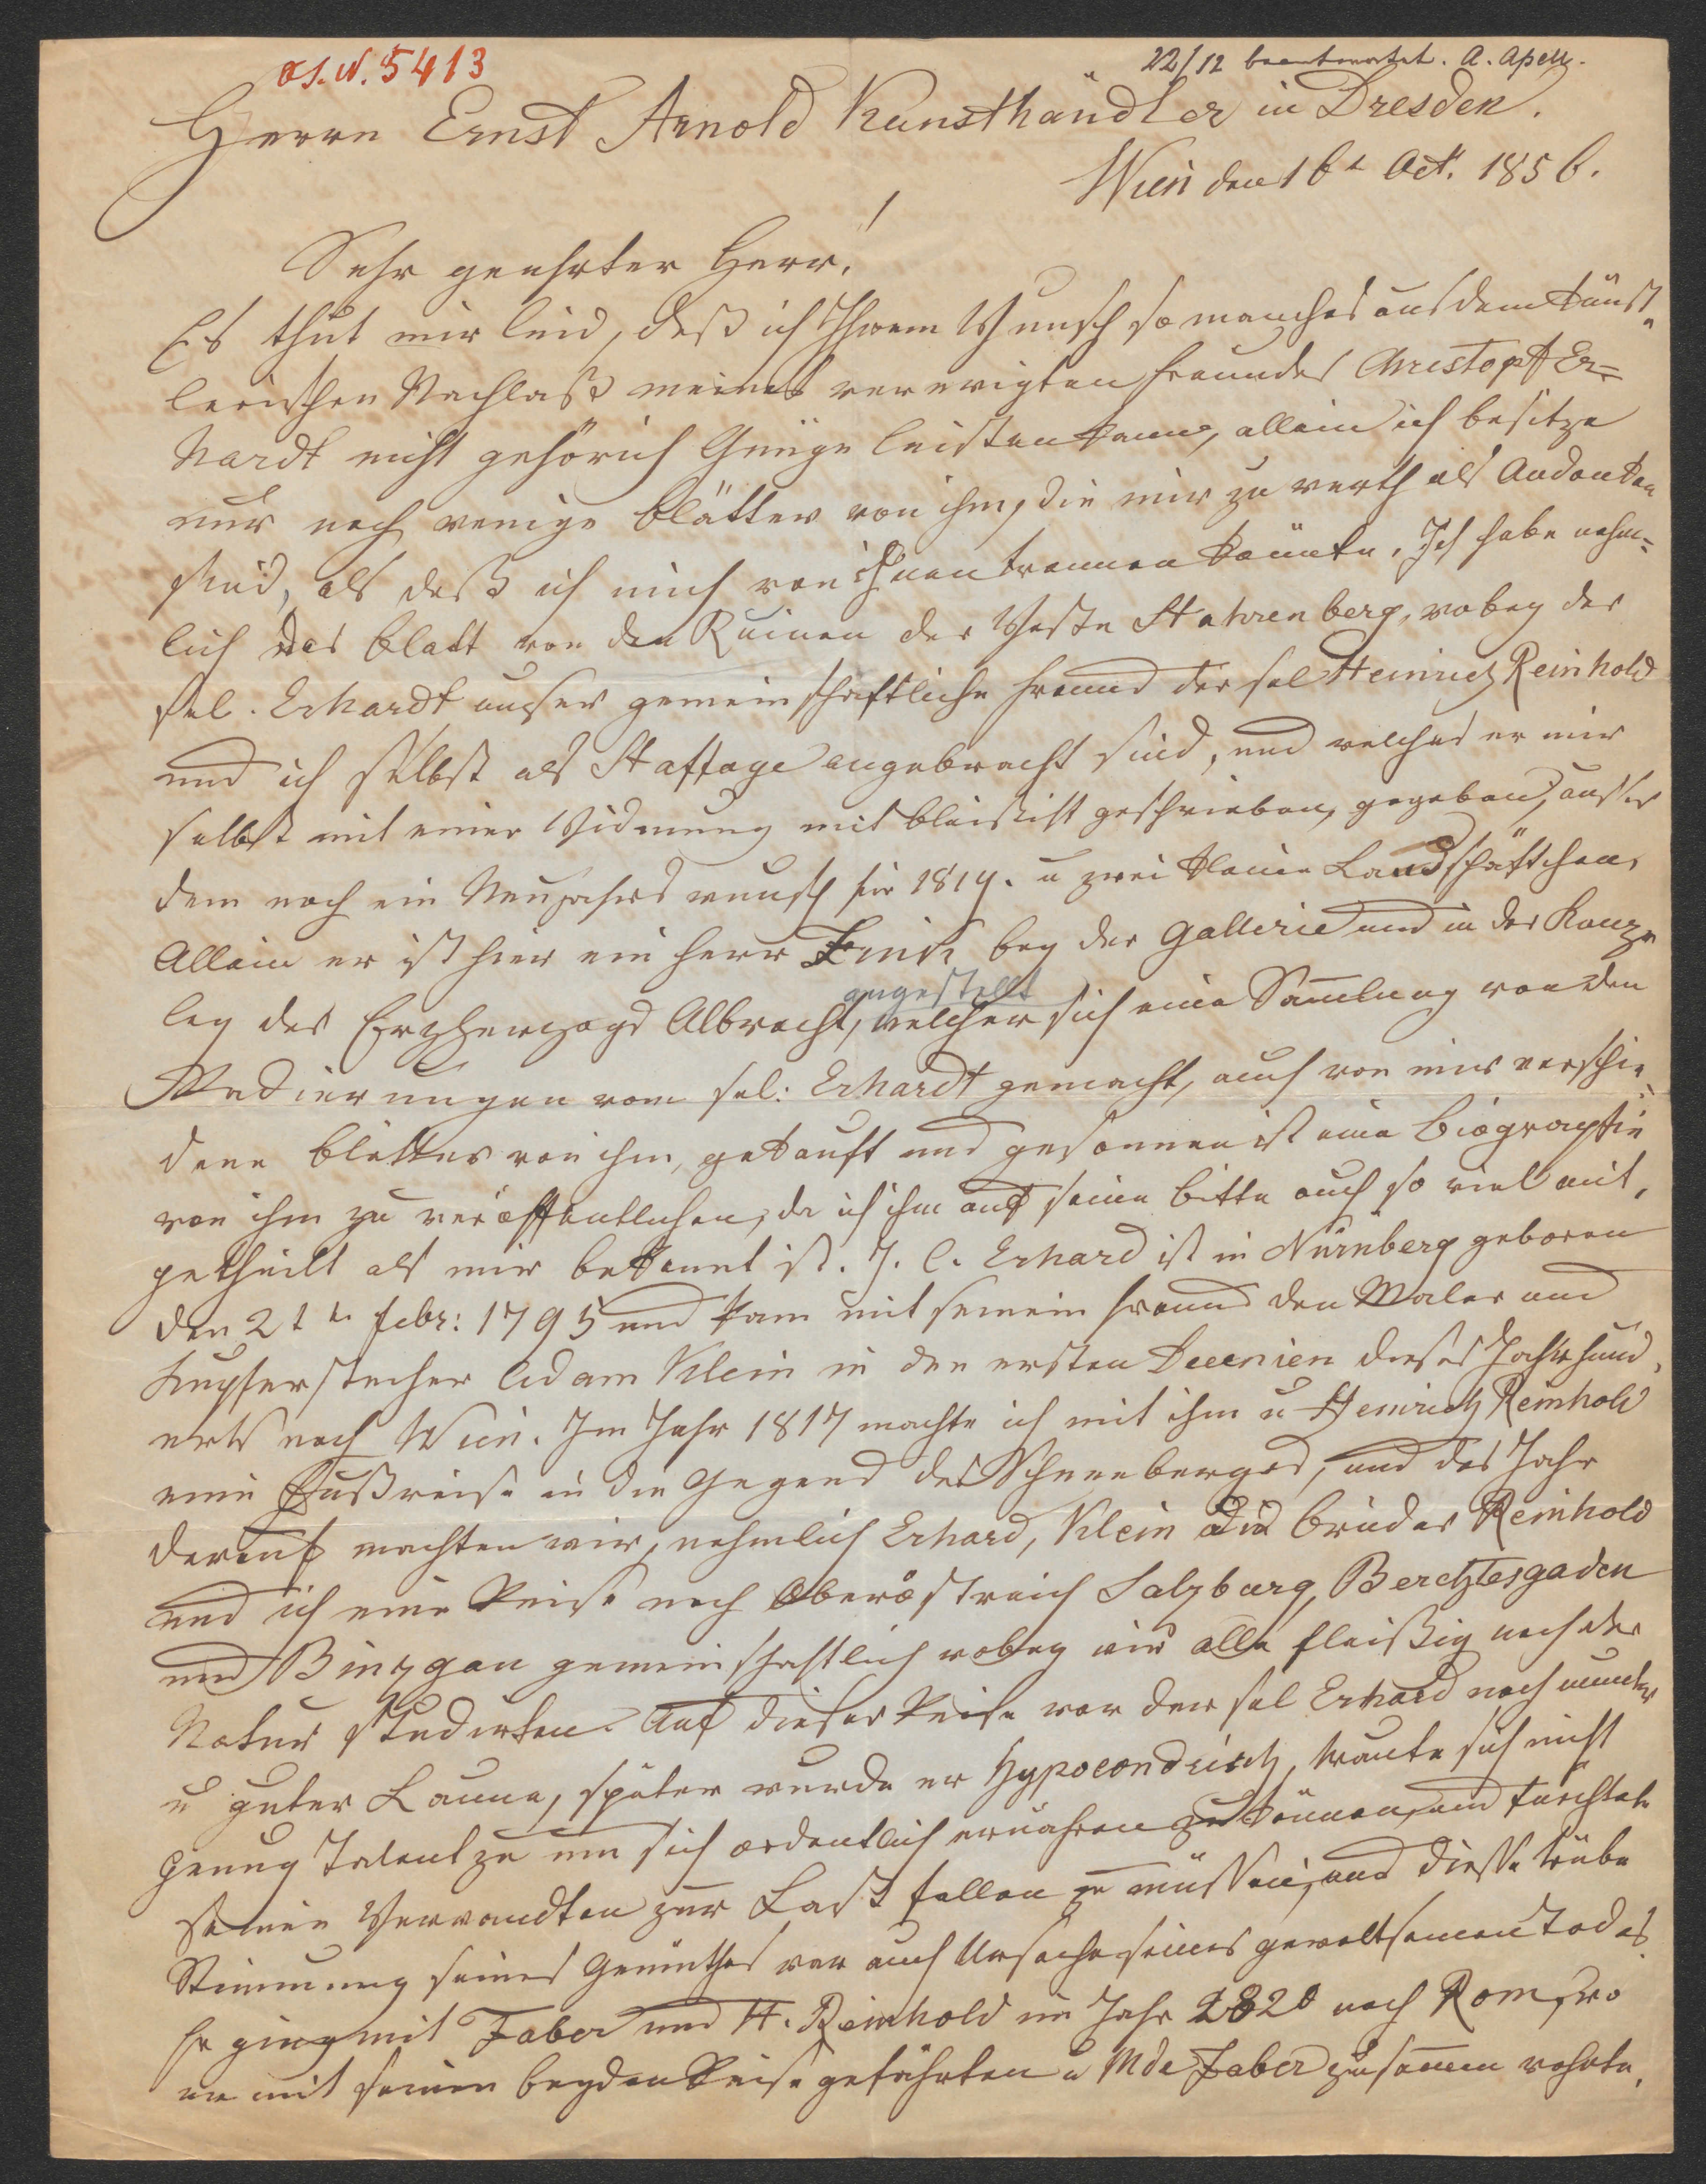 os. N. 5413
22/12 beantwortet. A. Apell.
Herrn Ernst Arnold Kunsthändler in Dresden.
Wien den 16t Oct. 1856.
Sehr geehrter Herr!
Es thut mir leid, daß ich Ihrem Wunsch so manches aus dem künst-
lerischen Nachlaß meines verewigten Freundes Christoph Er=
hardt nicht gehörich Genüge leisten kann, allein ich besitze
nur noch wenige Blätter von ihm, die mir zu werth als Andenken
sind, als daß ich mich von ihnen trennen könnte. Ich habe nehm=
lich das Blatt von den Ruinen der Veste Stahrenberg, wobey der
sel. Erhardt unser gemeinschaftliche Freund der sel Heinrich Reinhold
und ich selbst als Staffage angebracht sind, und welches er mir
selbst mit einer Widmung mit Bleistift geschrieben, gegeben, ausser
dem noch ein Neujahrs wunsch für 1819. u zwei kleine Landschäftchen.
Allein er ist hier ein Herr bey der Gallerie und in der Kanze
ley des Erzherzogs Albrecht, angestellt welcher sich eine Samlung von den
Radierungen vom sel: Erhardt gemacht, auch von mir verschie-
dene Blätter von ihm, gekauft und gesonnen ist eine Biographie
von ihm zu veröffentlichen, da ich ihm auf seine Bitte auch so viel mit-
getheilt als mir bekannt ist. J. C. Erhard ist in Nürnberg geboren
den 21tn Febr: 1795 und kam mit seinem Freund den Maler und
Kupferstecher Adam Klein in den ersten Decenien dieses Jahrhund-
erts nach Wien. Im Jahr 1817 machte ich mit ihm u Heinrich Reinhold
eine Fußreise in die Gegend des Schneeberges, und das Jahr
darauf machten wir, nehmlich Erhard, Klein die Brüder Reinhold
und ich eine Reise nach Oberöstreich Salzburg, Berchtesgaden
und Binzgau gemeinschaftlich wobey wir alle fleißig nach der
Natur studirten. Auf dieser Reise war der sel Erhard noch munter
u guter Laune, später wurde er Hypocondrisch, traute sich nicht
genug Talent zu um sich ordentlich ernähren zu können, und fürchtete
seinen Verwandten zur Last fallen zu müssen, und diese trübe
Stimmung seines Gemüthes war auch Ursache seines gewaltsamen Todes.
Er ging mit Faber und H. Reinhold im Jahr 1820 nach Rom, wo
er mit seinen beyden Reisegefährten u Mde Faber zusamen wohnte.